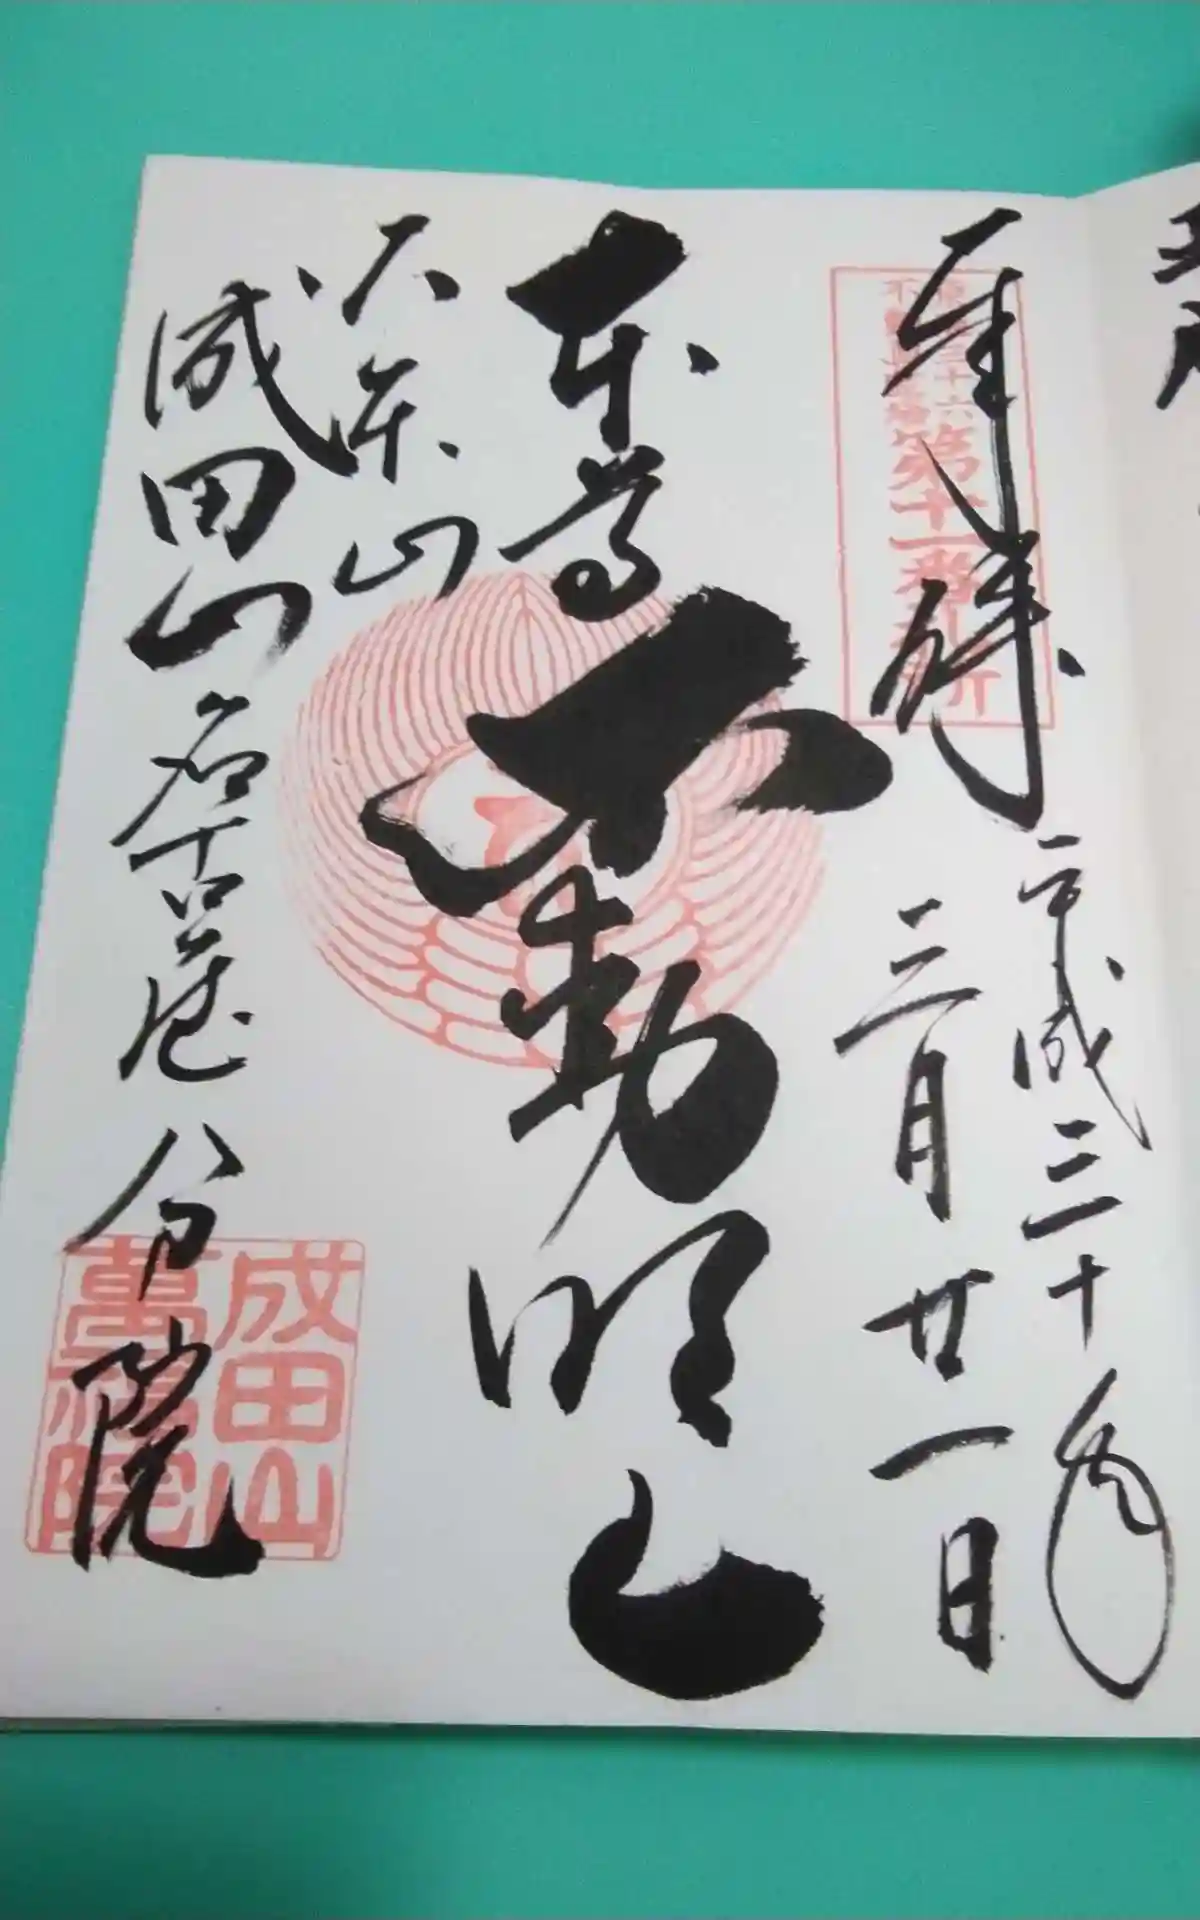 奉拝
東海三十六
不動尊霊場
第十一番札所
平成三十年
三月廿一日
本尊不動明王
大本山
成田山名古屋分院
成田山
萬福院